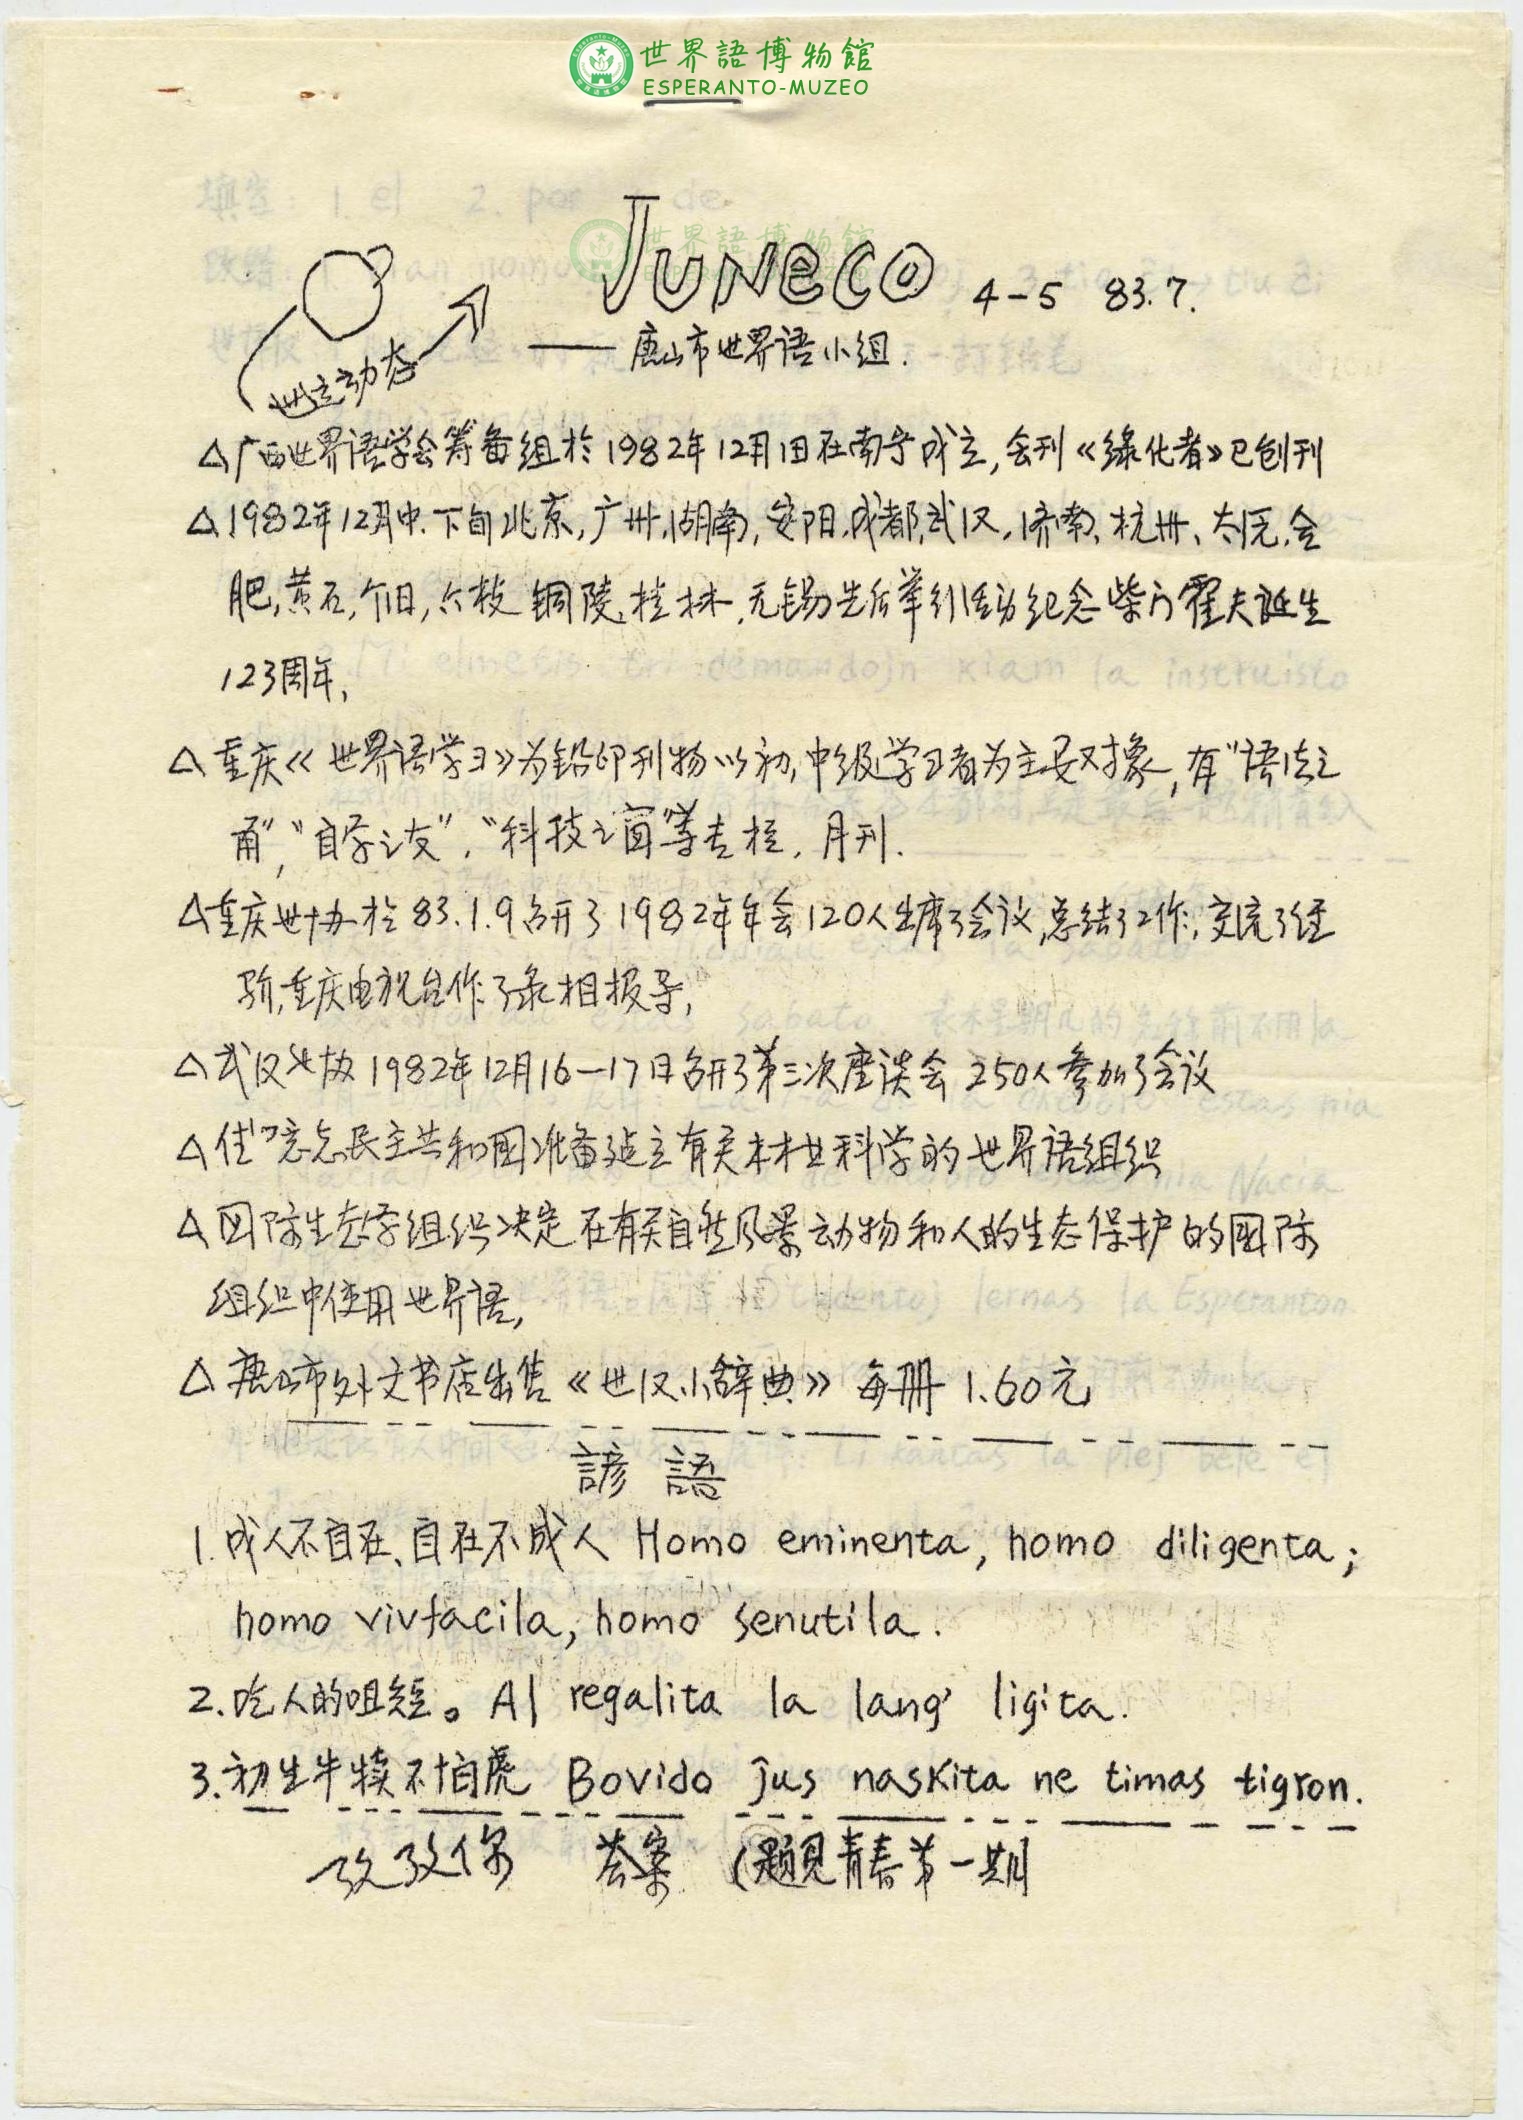 世界語博物館
ESPERANTO-MUZEO
JUNECO 4-5 83.7.
——唐山市世界语小组.
世运动态
△广西世界语学会筹备组於1982年12月1日在南宁成立,会刊《绿化者》已创刊
△1982年12月中.下旬北京,广州,湖南,安阳,成都,武汉,济南,杭州、太原,合
肥,黄石,个旧,六枝 铜陵,桂林,无锡先后举行活动纪念柴门霍夫诞生
123周年,
△重庆《世界语学习》为铅印刊物以初,中级学习者为主要对象,有"语法之
角","自学之友","科技之窗"等专栏,月刊.
△重庆世协於83.1.9召开了1982年年会120人出席了会议,总结了工作,交流了经
验,重庆电视台作了录相报导,
△武汉世协1982年12月16—17日召开了第三次座谈会 250人参加了会议
△住 民主共和国准备建立有关林业科学的世界语组织
△国际生态学组织决定在有关自然风景动物和人的生态保护的国际
组织中使用世界语,
△唐山市外文书店出售《世汉小辞典》每册1.60元
諺語
1.成人不自在、自在不成人 Homo eminenta, homo diligenta;
homo vivfacila, homo senutila.
2.吃人的咀短。Al regalita la lang' ligita.
3.初生牛犊不怕虎 Bovido ĵus naskita ne timas tigron.
考考你 荅案 (题见青春第一期